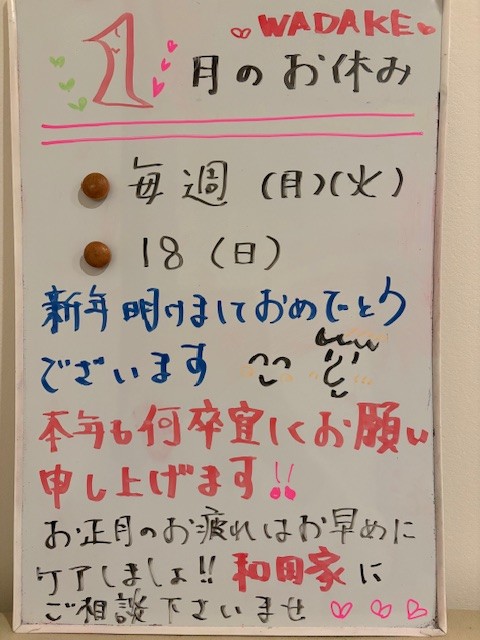 WADAKE
1月のお休み
毎週(月)(火)
18(日)
新年明けましておめでとう
ございます
本年も何卒宜しくお願い
申し上げます!!
お正月のお疲れはお早めに
ケアしましょ!! 和田家に
ご相談下さいませ